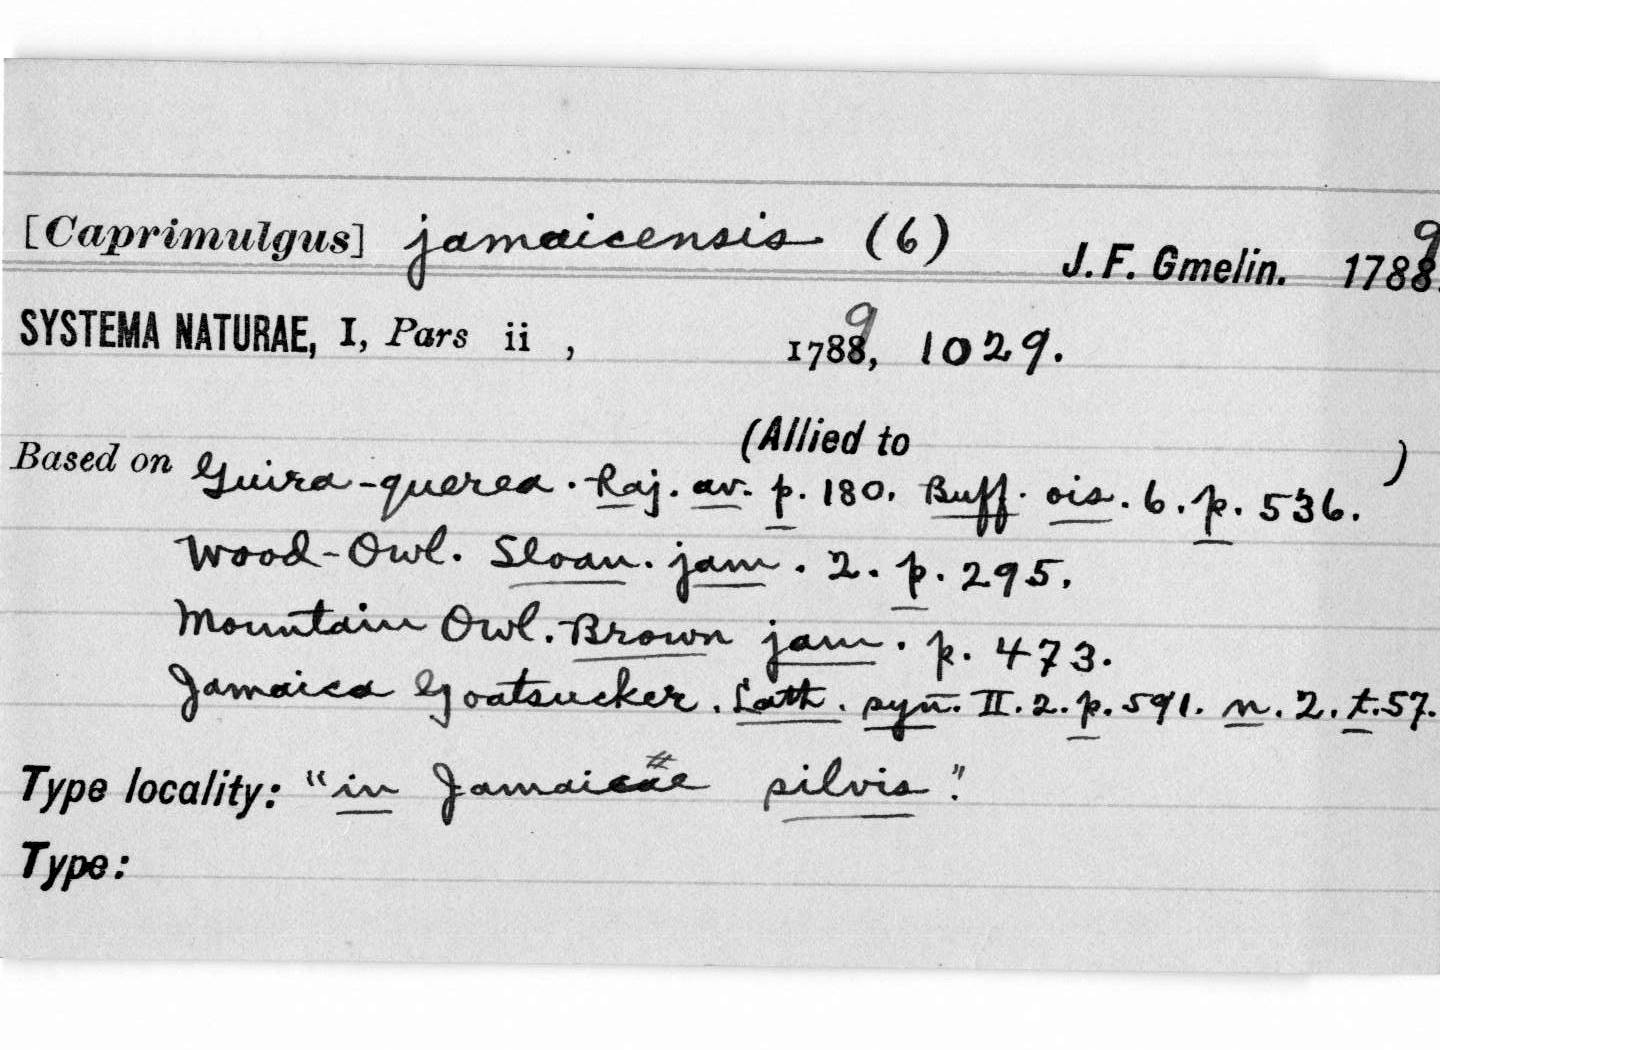 [Caprimulgus] jamaicensis (6) J. F. Gmelin. 1789
SYSTEMA NATURAE, I, Pars ii , 1789, 1029.
(Allied to )
Based on Guira-querea. Raj. av. p. 180. Buff. ois. 6. p. 536.
Wood-Owl. Sloan. jam. 2. p. 295.
Mountain Owl. Brown jam. p. 473.
Jamaica Goatsucker. Lath. syn. II. 2. p. 591. n. 2. t. 57.
Type locality: "in Jamaicae silvis".
Type: